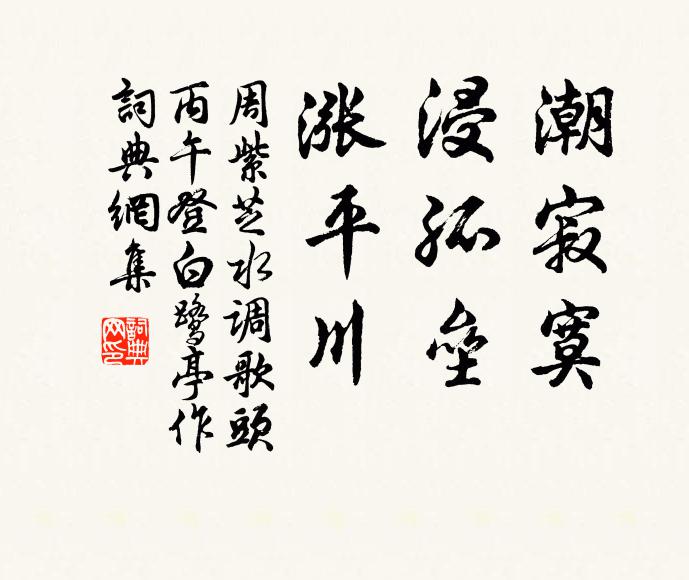 潮寂寞
浸孤壘
漲平川
周紫芝水调歌頭
丙午登白鹭亭作
詞典網集
詞典網印